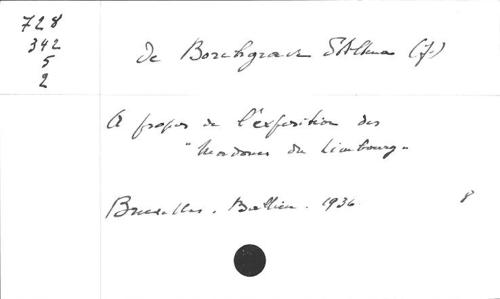 728
342
5
2
de Borchgrave d'Altena (J.)
A propos de l'exposition des
"Madones du Limbourg"
Bruxelles. Ballieu. 1936
8